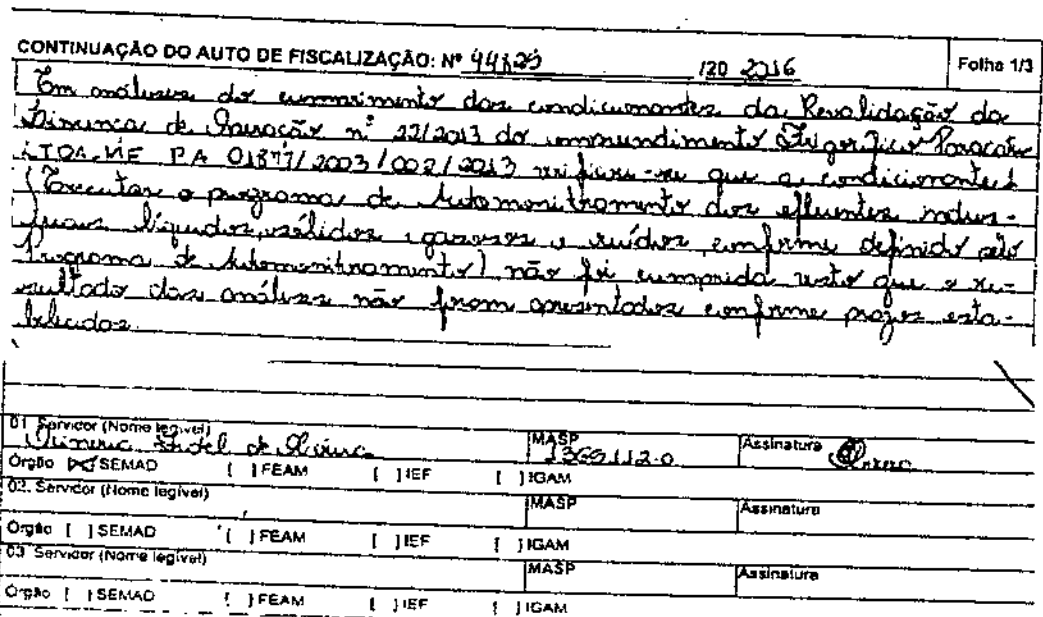 CONTINUAÇÃO DO AUTO DE FISCALIZAÇÃO: Nº /20 2016 Folha 1/3
Em análise do cumprimento das condicionantes da Revalidação da
Licença de Operação nº 22/2013 do empreendimento Frigorífico Paracatu
LTDA-ME PA 01877/2003/002/2013 verificou-se que a condicionante 1
(Executar o programa de Automonitramento dos efluentes indus-
triais líquidos, sólidos, gasosos e ruídos, conforme definido pelo
Programa de Automonitramento) não foi cumprida visto que o re-
sultado das análises não foram apresentados conforme prazos esta-
belecidos.
01 Servidor (Nome legível) MASP 1365112-0 Assinatura
Órgão [X] SEMAD [ ] FEAM [ ] IEF [ ] IGAM
02. Servidor (Nome legível) MASP Assinatura
Órgão [ ] SEMAD [ ] FEAM [ ] IEF [ ] IGAM
03 Servidor (Nome legível) MASP Assinatura
Órgão [ ] SEMAD [ ] FEAM [ ] IEF [ ] IGAM